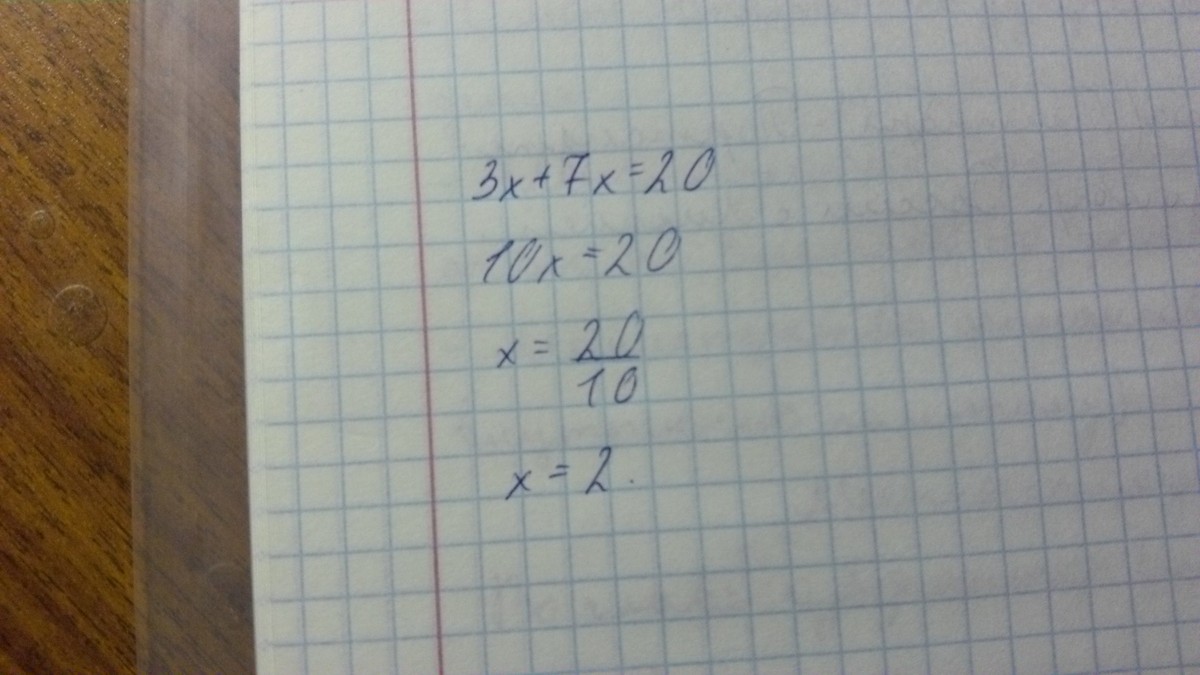 3x+7x=20
10x=20
x = 20/10
x = 2.